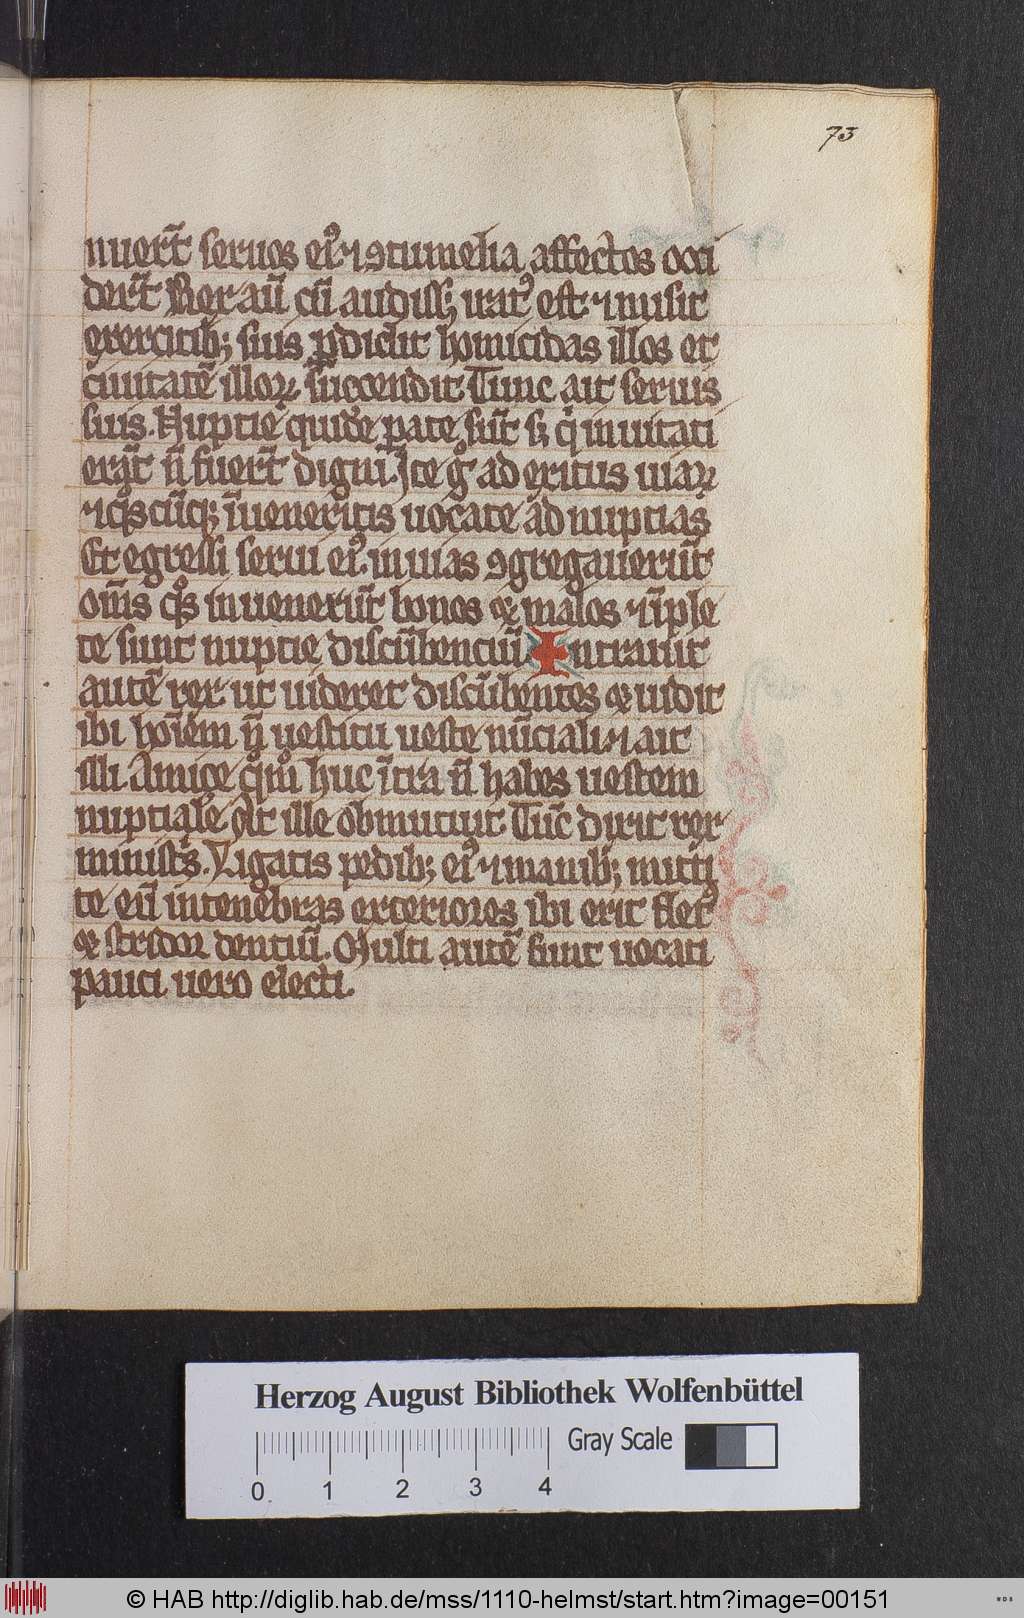 73
nuer̄t seruos ei᷒ ⁊ ꝯtumelia affectos occi
der̄t Rex aū cū audiss; irat᷒ est ⁊ missis
exercitib; suis ꝑdidit homicidas illos et
ciuitatē illoꝝ succendit Tunc ait seruis
suis. Nuptie quidē ꝑate sūt sꝫ qͥ inuitati
erāt nͦ fuer̄t digni. Ite gͦ ad exitus uiaꝝ
⁊ qͦscūqꝫ īueneritis uocate ad nuptias
Et egressi serui ei᷒ in uias ꝯgregauerūt
om̄s qͦs inuenerūt bonos et malos ⁊ īple
te sunt nuptie discūbenciū Intrauit
autē rex ut uideret discūbentes et uidit
ibi hoīem nͦ uestitū ueste nūciali ⁊ ait
illi Amice qͦmͦ huc ītra nͦ habes uestem
nuptialē At ille obmutuit Tūc dixit rex
ministͥs. Ligatis pedib; ei᷒ ⁊ manib; mitti
te eū in tenebras exteriores ibi erit flet᷒
et stridor dentiū. Multi autē sunt uocati
pauci uero electi.
Herzog August Bibliothek Wolfenbüttel
Gray Scale
0 1 2 3 4
© HAB http://diglib.hab.de/mss/1110-helmst/start.htm?image=00151
WDB